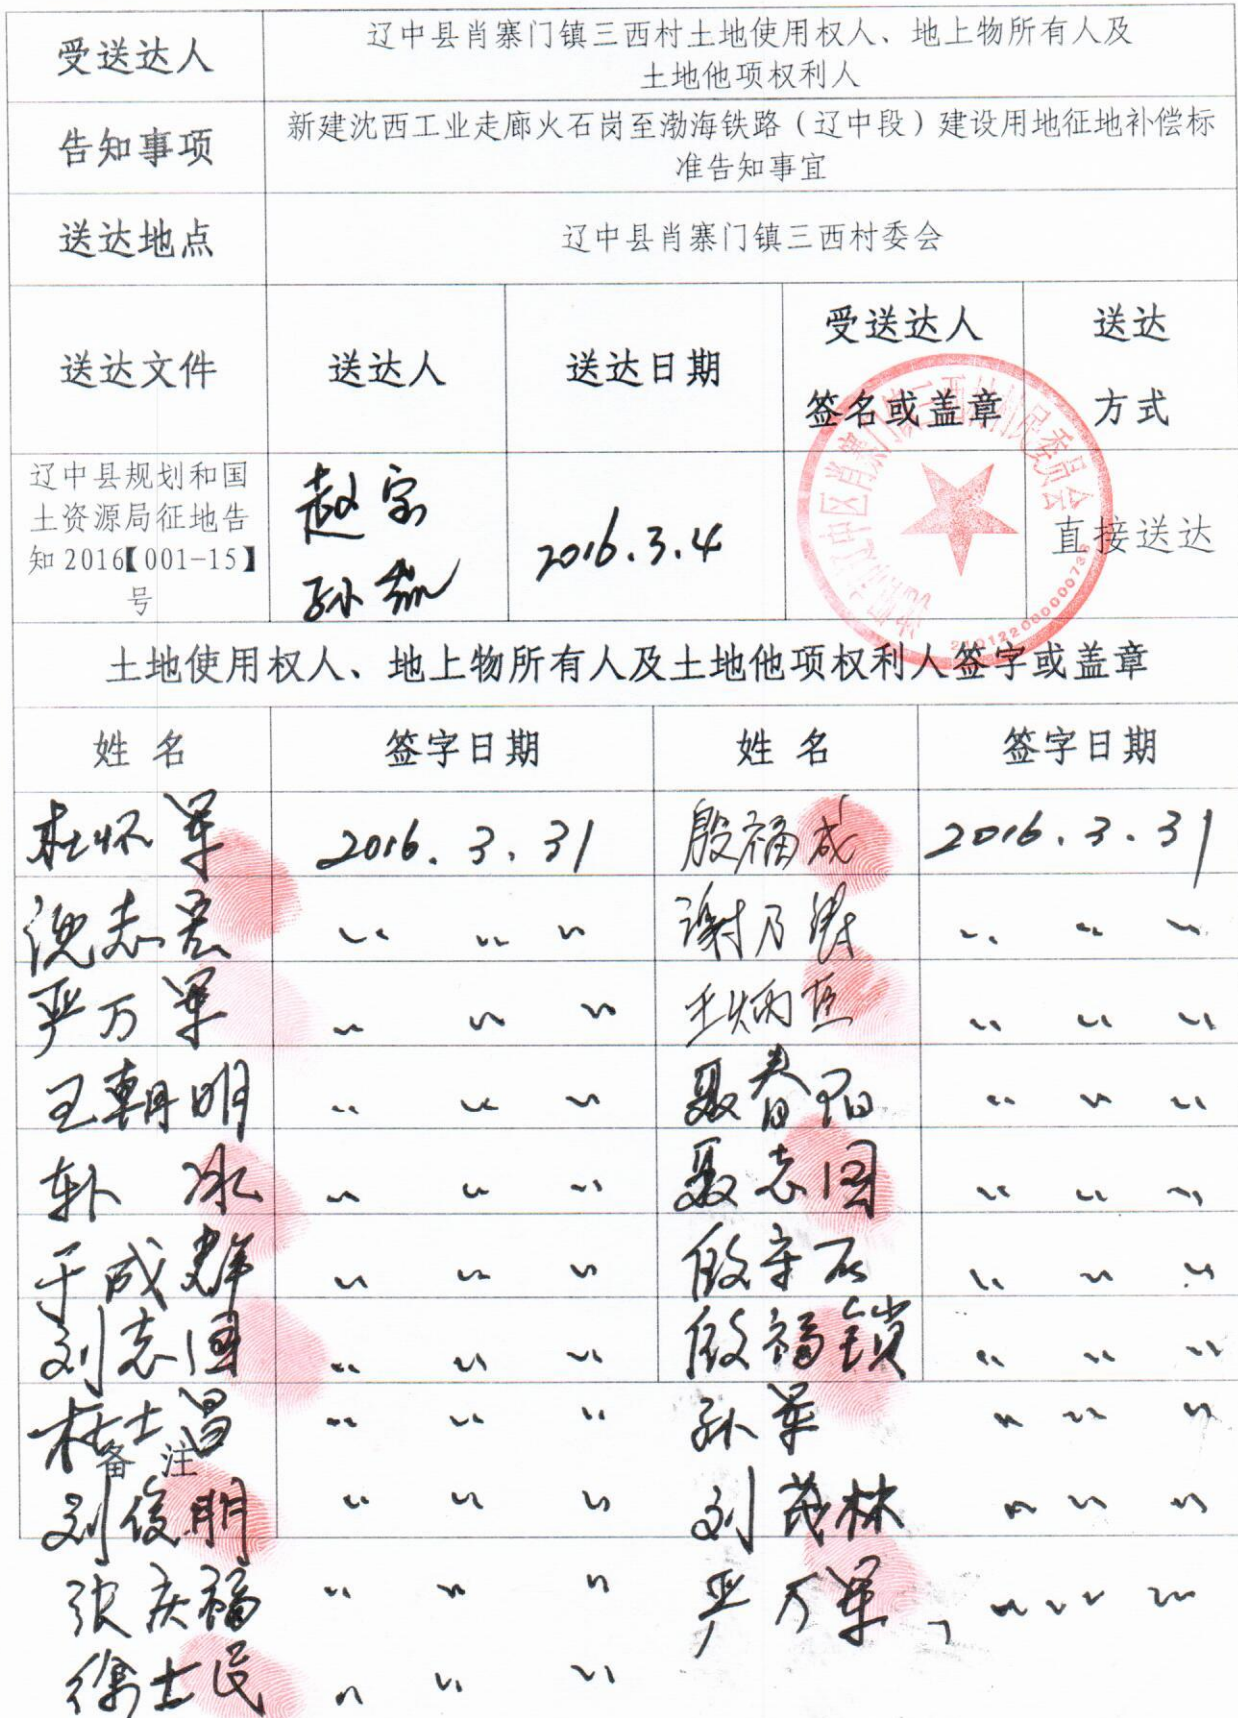 受送达人
辽中县肖寨门镇三西村土地使用权人、地上物所有人及
土地他项权利人
告知事项
新建沈西工业走廊火石岗至渤海铁路（辽中段）建设用地征地补偿标
准告知事宜
送达地点
辽中县肖寨门镇三西村委会
送达文件 送达人 送达日期 受送达人 签名或盖章 送达 方式
辽中县规划和国
土资源局征地告
知2016【001-15】
号
赵宇
孙
2016.3.4
辽中区肖寨门镇三西村村民委员会
直接送达
土地使用权人、地上物所有人及土地他项权利人签字或盖章
姓 名 签字日期 姓 名 签字日期
杜怀军 2016.3.31 殷福成 2016.3.31
志 〃 〃 〃 谢乃 〃 〃 〃
严万军 〃 〃 〃 王炳 〃 〃 〃
王朝明 〃 〃 〃 聂春阳 〃 〃 〃
冰 〃 〃 〃 聂志国 〃 〃 〃
于成群 〃 〃 〃 殷守 〃 〃 〃
刘志国 〃 〃 〃 殷福锁 〃 〃 〃
杜士昌 〃 〃 〃 孙军 〃 〃 〃
备 注
刘俊明 〃 〃 〃 刘茂林 〃 〃 〃
张庆福 〃 〃 〃 严万军 〃 〃 〃
徐士民 〃 〃 〃